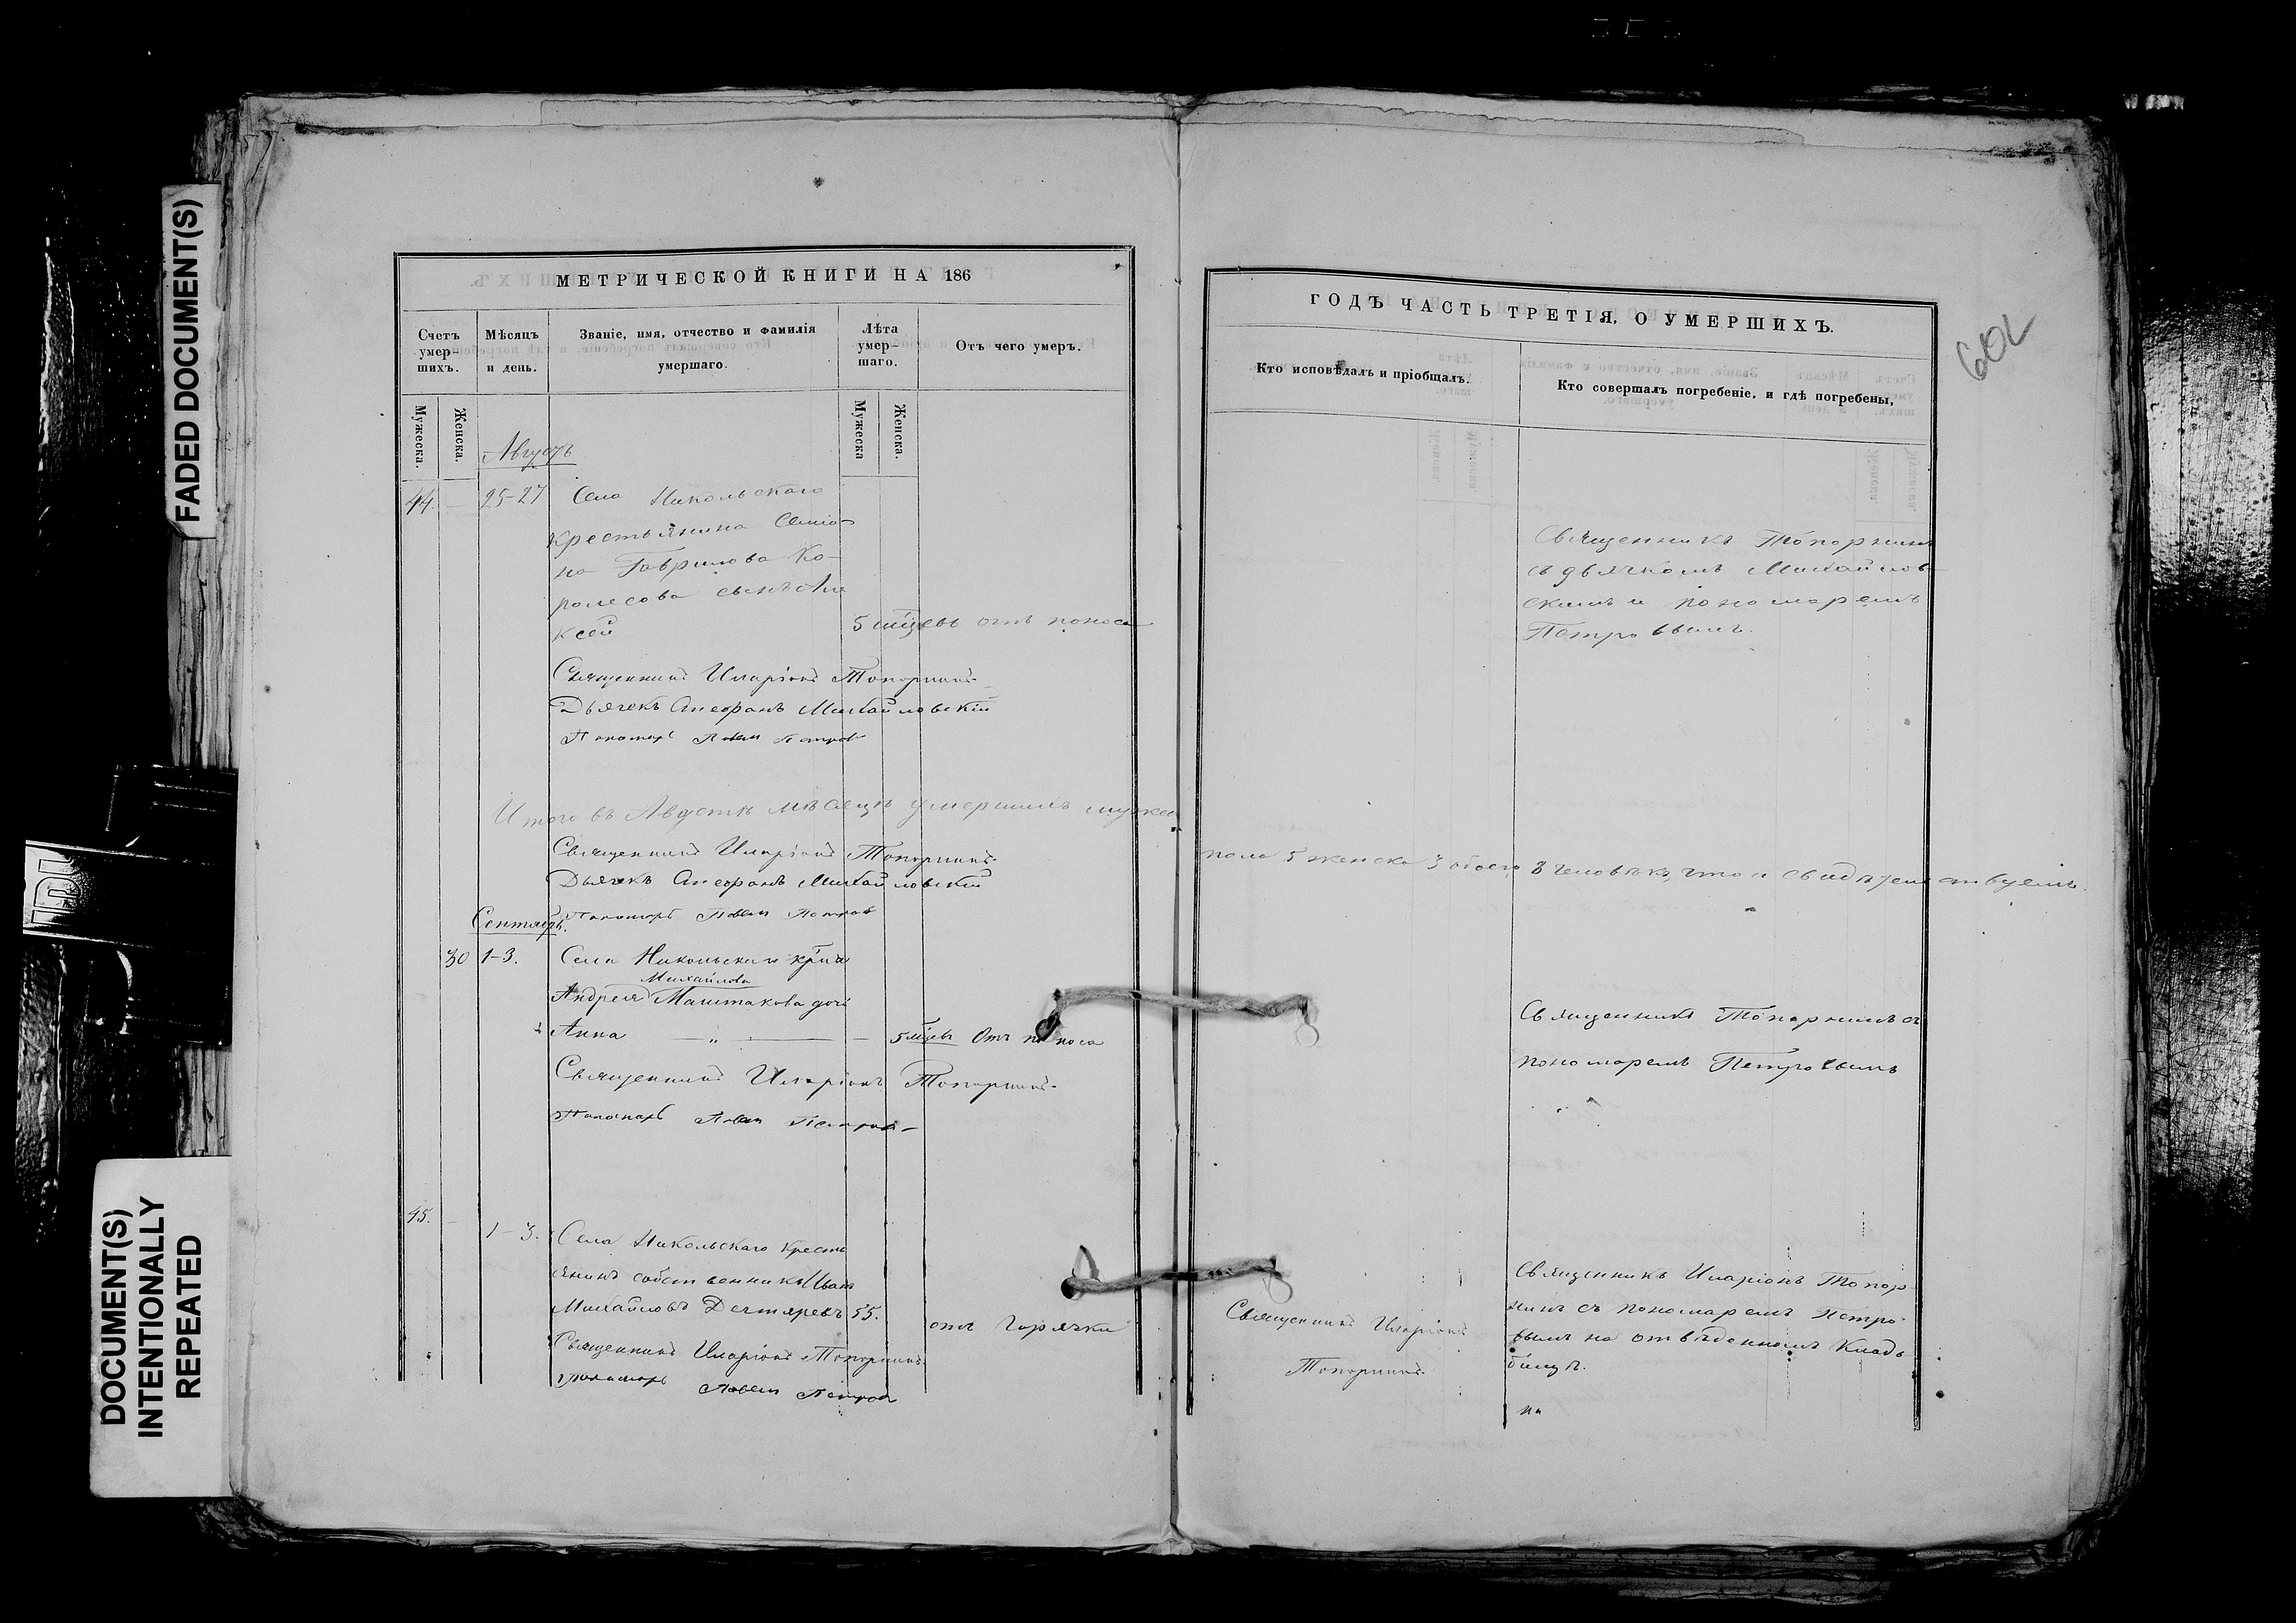 FADED DOCUMENT(S)
DOCUMENT(S)
INTENTIONALLY
REPEATED
МЕТРИЧЕСКОЙ КНИГИ НА 186
Счетъ умер-шихъ.
Мѣсяцъ и день.
Званіе, имя, отчество и фамилія умершаго.
Лѣта умер-шаго.
Отъ чего умеръ.
Мужеска.
Женска.
Мужеска
Женска.
Августъ
44. — 25-27 Села Никольскаго
крестьянина Семіо-
на Гаврилова Ко-
ролесова сынъ Але
ксей 5 мцевъ отъ поноса
Священникъ Иларіонъ Топорнинъ
Дьячекъ Михайловскій
Пономарь Павелъ Петровъ
Итого въ Августѣ мѣсяцѣ умершихъ мужеска
Священникъ Иларіонъ Топорнинъ
Дьячекъ Михайловскій
Пономарь Павелъ Петровъ
Сентябрь.
30 1-3. Села Никольскаго кр-на
Михайлова
Андрея Маштакова дочь
Анна — „ — — 5 мцевъ Отъ поноса
Священникъ Иларіонъ Топорнинъ
Пономарь Павелъ Петровъ
45. — 1-3. Села Никольскаго кресть
янинъ собственникъ Иванъ
Михайловъ Дехтяревъ 55. отъ горячки
Священникъ Иларіонъ Топорнинъ
Пономарь Павелъ Петровъ
ГОДЪ ЧАСТЬ ТРЕТІЯ, О УМЕРШИХЪ.
Кто исповѣдалъ и пріобщалъ.
Кто совершалъ погребеніе, и гдѣ погребены,
Священникъ Топорнинъ
съ дьячкомъ Михайлов-
скимъ и пономаремъ
Петровымъ.
пола 5 женска 3 обоего 8 человѣкъ, что и свидѣтельствуемъ.
Священникъ Топорнинъ съ
пономаремъ Петровымъ
Священникъ Иларіонъ
Топорнинъ
Священникъ Иларіонъ Топор-
нинъ съ пономаремъ Петро-
вымъ на отведенномъ Клад
бищѣ.